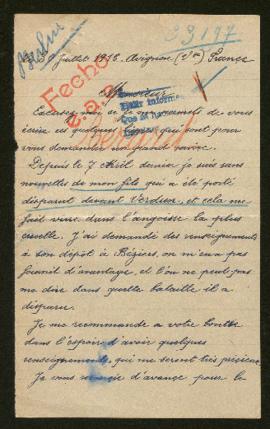 Berlin
33197
9 juillet 1916, Avignon (Vse) France
Monsieur
Fecho
Excusez moi si je me permets de vous
écrire ces quelques lignes qui sont pour
vous demander un grand service.
Depuis le 7 Avril dernier je suis sans
nouvelles de mon fils qui a été porté
disparut devant Verdun, et cela me
fait vivre dans l'angoisse la plus
cruelle. J'ai demandé des renseignements
à son dépôt à Béziers, on m'en a pas
fournit d'avantage, et l'on ne peut pas
me dire dans quelle bataille il a
disparu.
Je me recommande a votre bonté
dans l'espoir d'avoir quelques
renseignements, qui me seront très précieux
Je vous remercie d'avance pour le